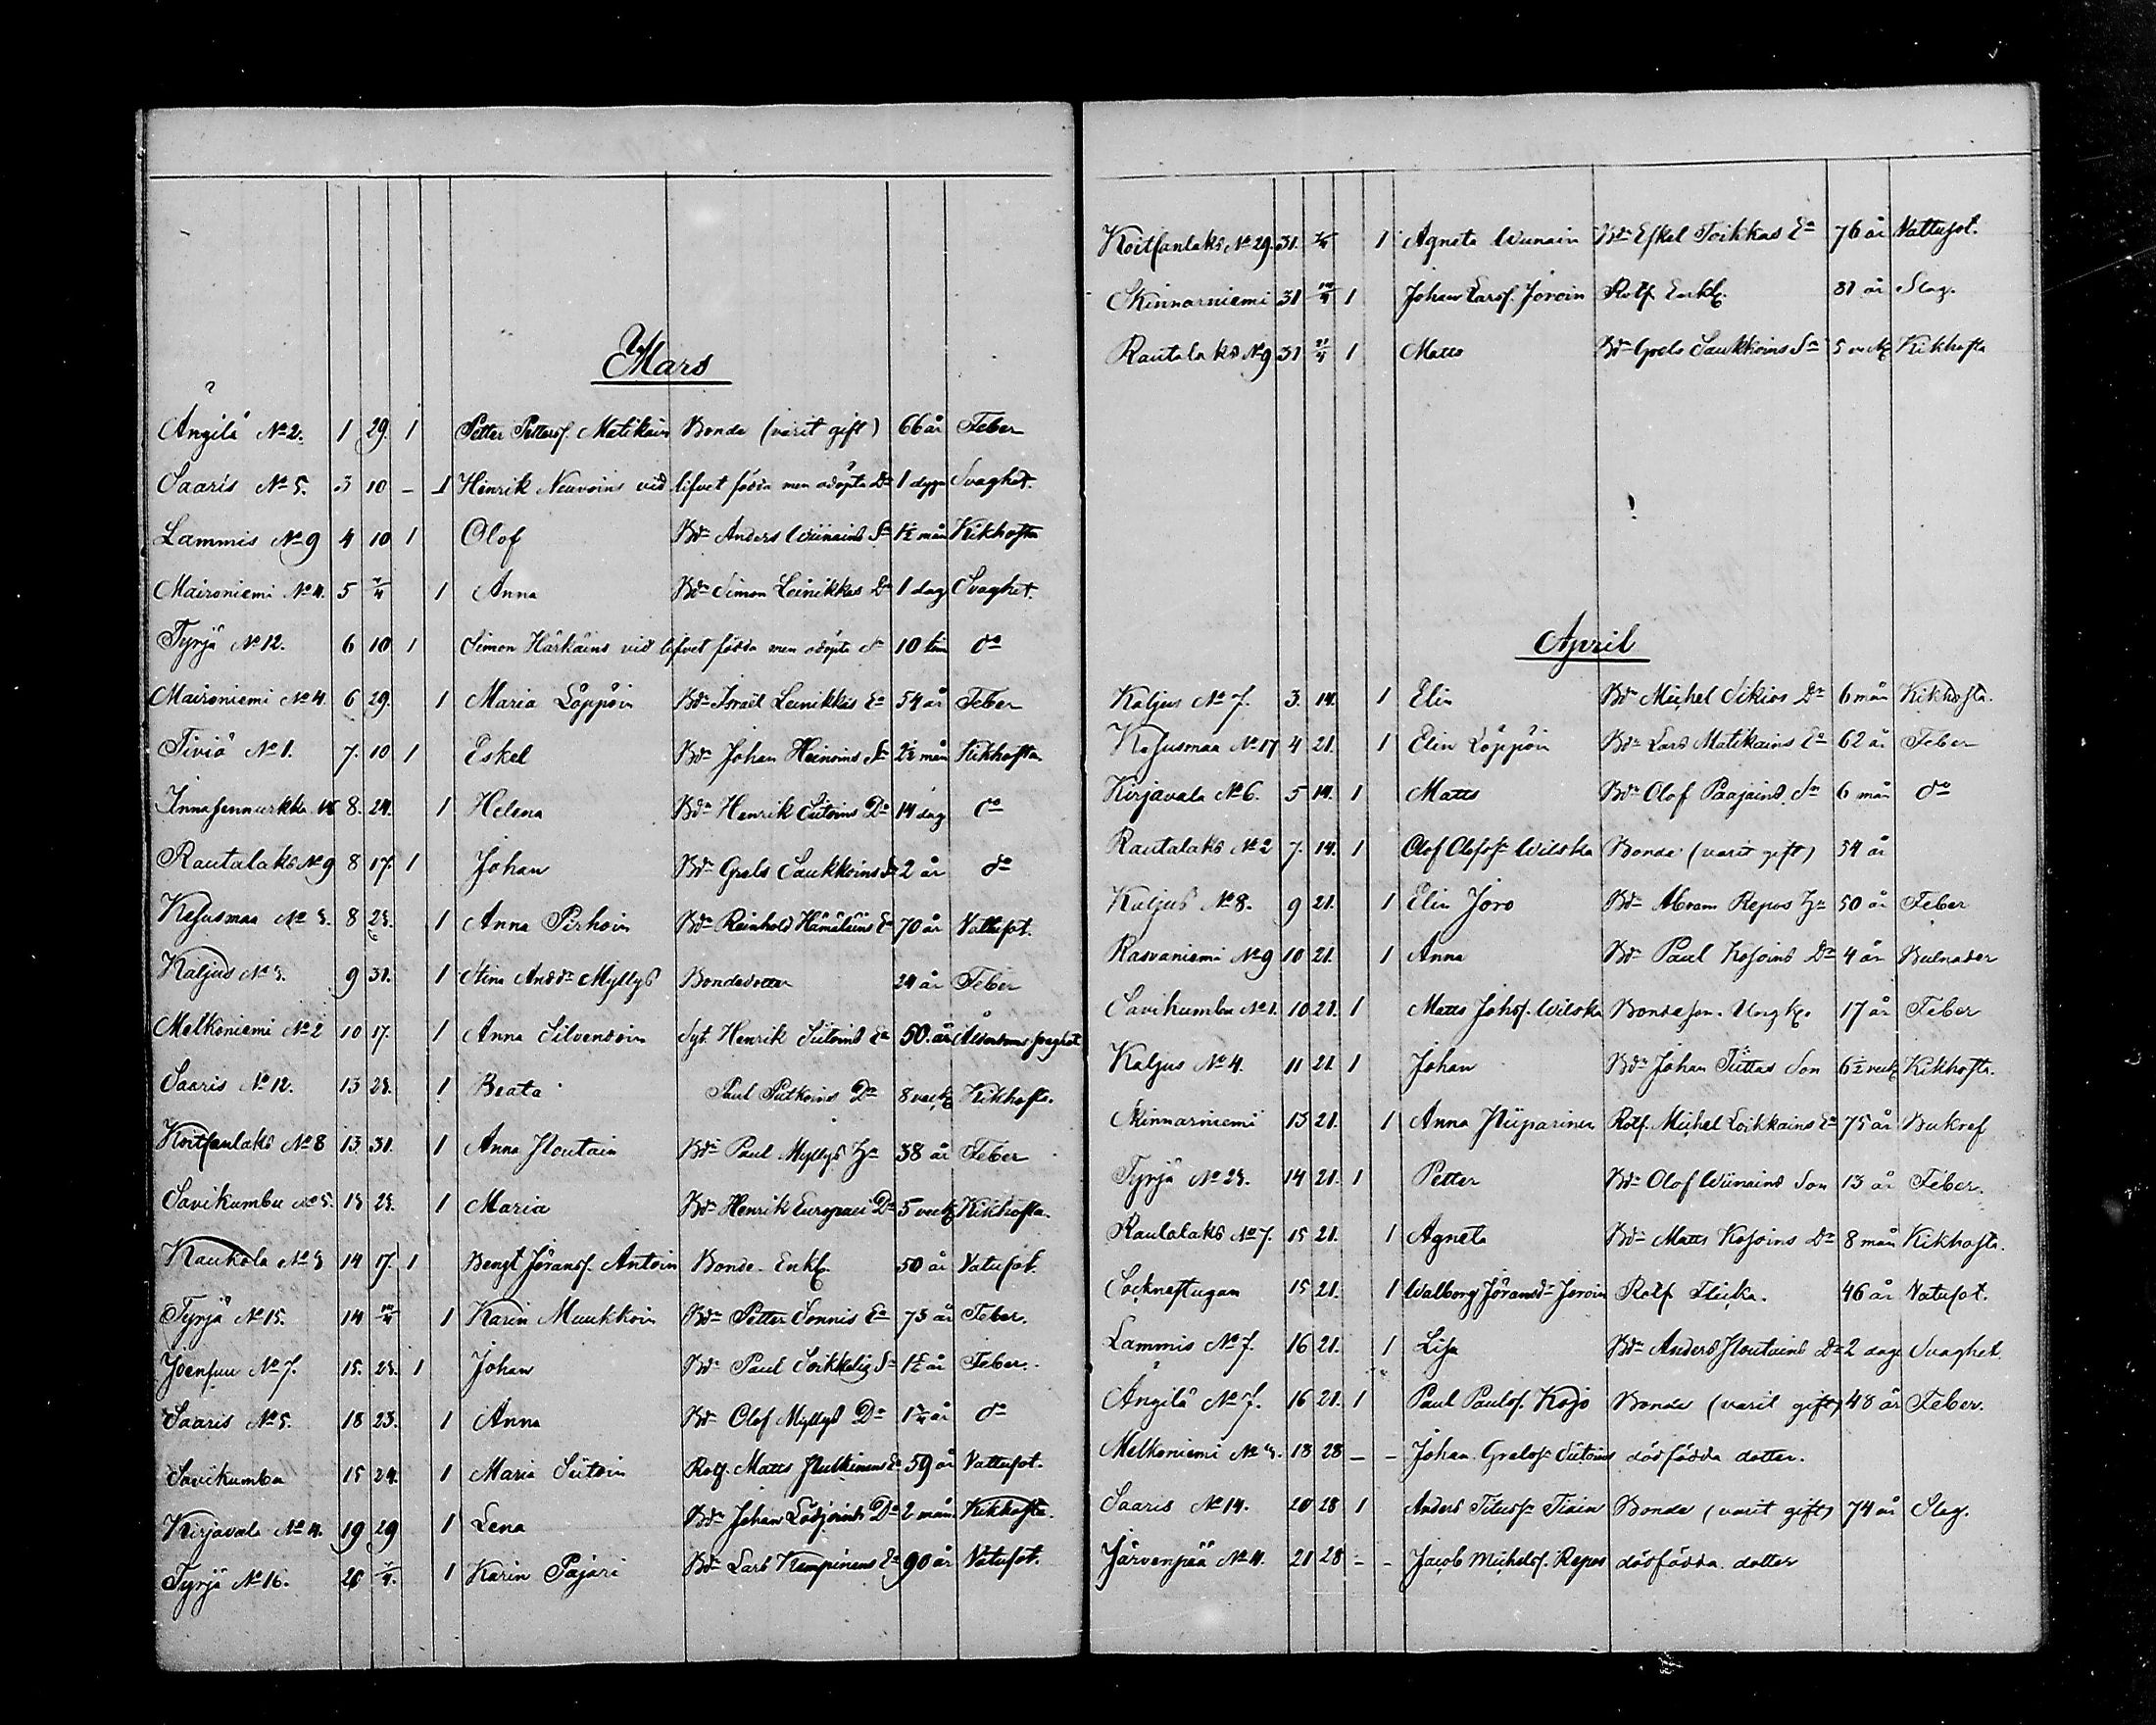 Mars
Ångilä No 2. 1 29. 1 Petter Pettersf. Matikain Bonde (varit gift) 66 år Feber
Saaris No 5. 3 10 - 1 Henrik Neuvoins vid lifvet födda men odöpta Dr 1 dygn Svaghet.
Lammis No 9 4 10 1 Olof Bdn Anders Wiinains Sn 1½ mån Kikhosta
Maironiemi No 4. 5 1 Anna Bdn Simon Leinikkas Dr 1 dag Svaghet.
Tyrjä No 12. 6 10 1 Simon Härkäins vid lifvet födda men odöpta Sn 10 tim do
Maironiemi No 4. 6 29. 1 Maria Löppöin Bdn Israël Leinikkas Ea 54 år Feber
Tiviä No 1. 7. 10 1 Eskel Bdn Johan Heinoins Sn 2½ mån Kikhosta
8. 24. 1 Helena Bdn Henrik Siitoins Dr 14 dag do
Rautalaks No 9 8 17. 1 Johan Bdn Grels Saukkoins Sn 2 år do
Kesusmaa No 3. 8 23. 1 Anna Pirhoin Bdn Reinhold Hämäläins Ea 70 år Vattusot.
Kaljus No 3. 9 31. 1 Stina Andsdr Myllys Bondedotter 24 år Feber
Melkoniemi No 2 10 17. 1 Anna Silvendoin Syt. Henrik Siitoins Ea 50. år Ålderdoms svaghet
Saaris No 12. 13 23. 1 Beata Paul Putkoins Dr 8 veck Kikhosta.
Koitsanlaks No 8 13. 31. 1 Anna Houtain Bdn Paul Myllys Hu 38 år Feber
Savikumbu No 5. 13 23. 1 Maria Bdn Henrik Europaei Dr 5 veck Kikhosta.
Kaukola No 3 14 17. 1 Bengt Jöransf. Antoin Bonde. Enkl. 50 år Vatusot.
Tyrjä No 15. 14 1 Karin Muukkoin Bdn Petter Sonnis Ea 73 år Feber.
Joensuu No 7. 15. 23. 1 Johan Bdn Paul Soikkelis Sn 1½ år Feber.
Saaris No 5. 18 23. 1 Anna Bdn Olof Myllys Dr 1¼ år do
Savikumbu 15 24. 1 Maria Siitoin Rotf. Matts Hulkinens Ea 59 år Vattusot.
Kirjavala No 4. 19 29 1 Lena Bdn Johan Lodjoinds Dr 2 mån Kikhosta.
Tyrjä No 16. 26 1 Karin Pajari Bdn Lars Kempinens Ea 90 år Vatusot.
Koitsanlaks No 29. 31. 1 Agneta Wiinain Bdn Eskel Toikkas Ea 76 år Vattusot.
Skinnarniemi 31 1 Johan Larsf. Joroin Rotf. Enkl. 81 år Slag.
Rautalaks No 9 31 1 Matts Bdn Grels Saukkoins Sn 5 veck Kikhosta
April
Kaljus No 7. 3. 14. 1 Elin Bdn Michel Sikios Dr 6 mån Kikhosta.
Kesusmaa No 17 4 21. 1 Elin Löppöin Bdn Lars Matikains Ea 62 år Feber
Kirjavala No 6. 5 14. 1 Matts Bdn Olof Paajains Sn 6 mån do
Rautalaks No 2 7. 14. 1 Olof Olofsfn Wilska Bonde (varit gift) 54 år
Kaljus No 8. 9 21. 1 Elin Joro Bdn Abram Repos Hu 50 år Feber
Rasvaniemi No 9 10 21. 1 Anna Bdn Paul Kosoins Dr 4 år Bulnader
Savikumbu No 1. 10 21. 1 Matts Johsf. Wilska Bondeson. Ungk. 17 år Feber
Kaljus No 4. 11 21. 1 Johan Bdn Johan Tiittas Son 6½ veck Kikhosta.
Skinnarniemi 13 21. 1 Anna Hiiparinen Rotf. Michel Loikkains Ea 75 år Bukref
Tyrjä No 23. 14 21. 1 Petter Bdn Olof Wiinains Son 13 år Feber.
Rautalaks No 7. 15 21. 1 Agneta Bdn Matts Kosoins Dr 8 mån Kikhosta.
Sockneftugan 15 21. 1 Walborg Jöransdr Joroin Rotf Flicka. 46 år Vatusot.
Lammis No 7. 16 21. 1 Lisa Bdn Anders Houtains Dr 2 dag Svaghet.
Ångilä No 7. 16 21. 1 Paul Paulsf. Kojo Bonde (varit gift) 48 år Feber.
Melkoniemi No 3. 18 28 - - Johan Grelsfn Siitoins dödfödda dotter.
Saaris No 14. 20 28 1 Anders Titusfn Tiain Bonde (varit gift) 74 år Slag.
Järvenpää No 4. 21 28 - - Jacob Michelsf. Repos dödfödda dotter